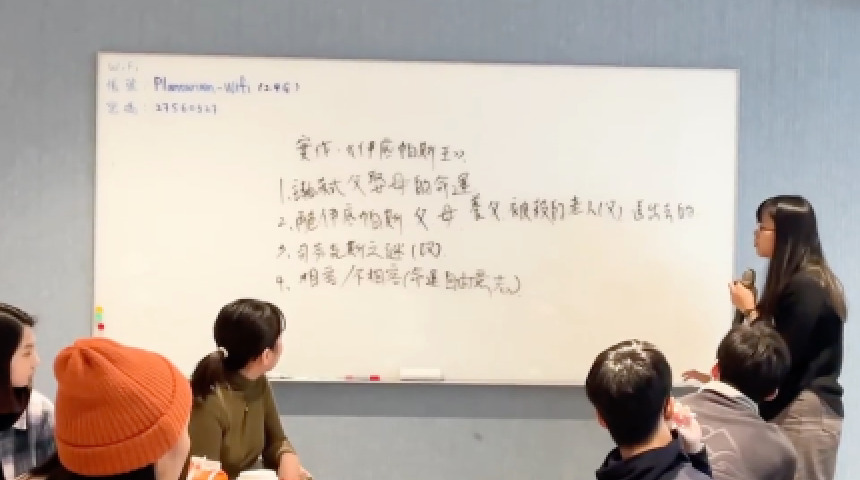 WiFi
帳號: Planourism-Wifi (2.4G)
密碼: 27560327
實作:《伊底帕斯王》
1. 弒父娶母的命運
2. 伊底帕斯 父母 養父 被殺的老人(父) 逃出去的
3. 司芬克斯之謎
4. 相客/不相客(命運自由意志)